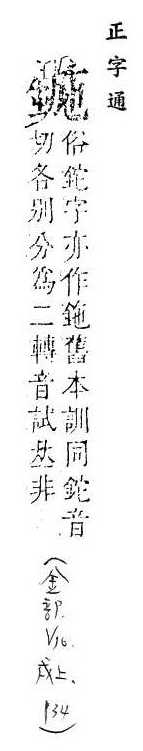 正字通
俗鉈字亦作鉇舊本訓同鉈音
切各別分爲二轉音試𠀤非
(金部. V/16. 戌上、134)